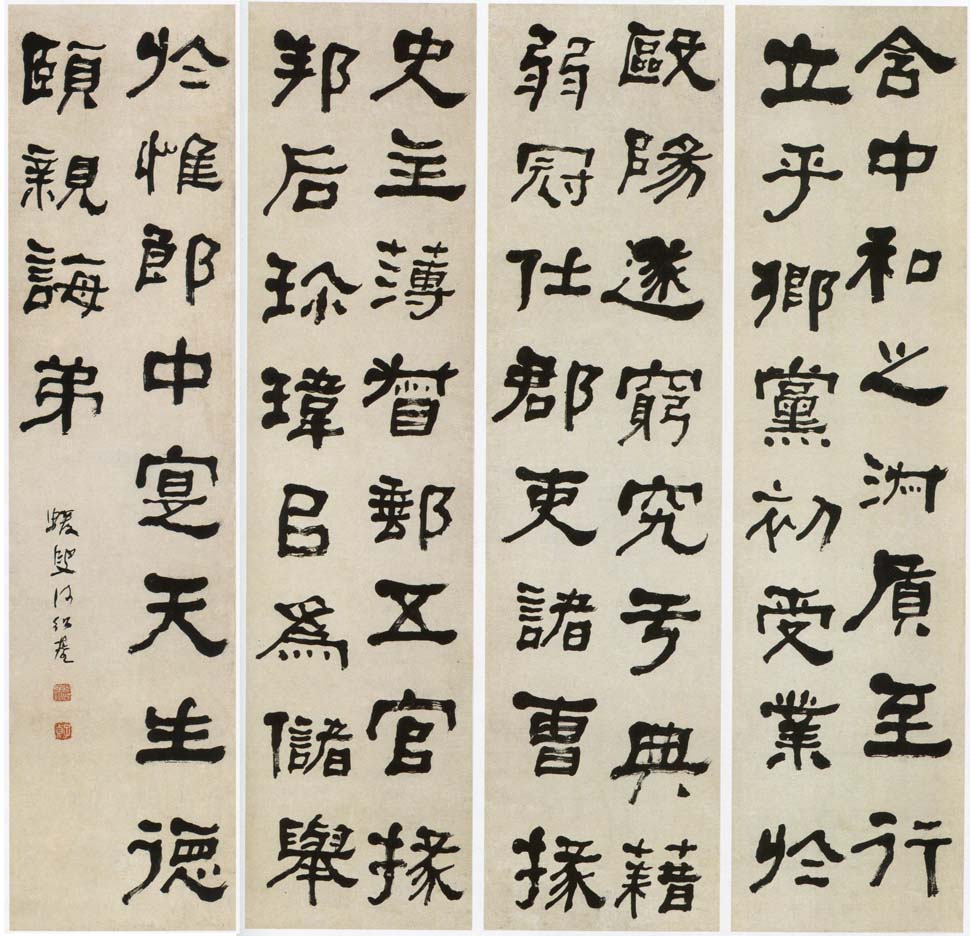 含中和之淑質至行
立乎鄉黨初受業於
毆陽遂窮究于典藉
弱冠仕郡吏諸曹掾
史主薄督郵五官掾
邦后珍瑋以為儲舉
於惟郎中寔天生德
頤親誨弟
蝯叟何紹基